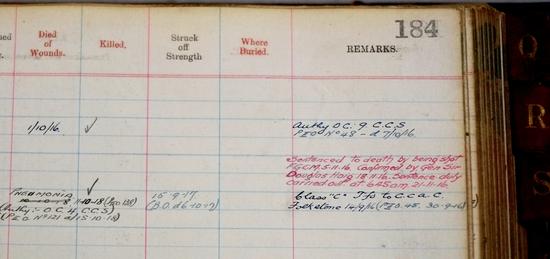 184
Died
of
Wounds.
Killed.
Struck
off
Strength
Where
Buried.
REMARKS.
1/10/16. ✓
Authy O C. 9. C.C.S
PEO Nº 48 - d 7/10/16.
Sentenced to death by being shot
FGCM. 5.11.16. Confirmed by Gen Sir
Douglas Haig 18.11.16. Sentence duly
carried out at 6.45 am. 21-11-16.
PNEUMONIA ✓
11-10-18
15-9-17
Class "C" Tfs to C.C.A.C.
(Authy:- O C 4, C.C.S)
Folkstone 14/9/16 (PEO. 45. 30-9-16)
(PEO Nº 121 d/15-10-18)
Q
R
S